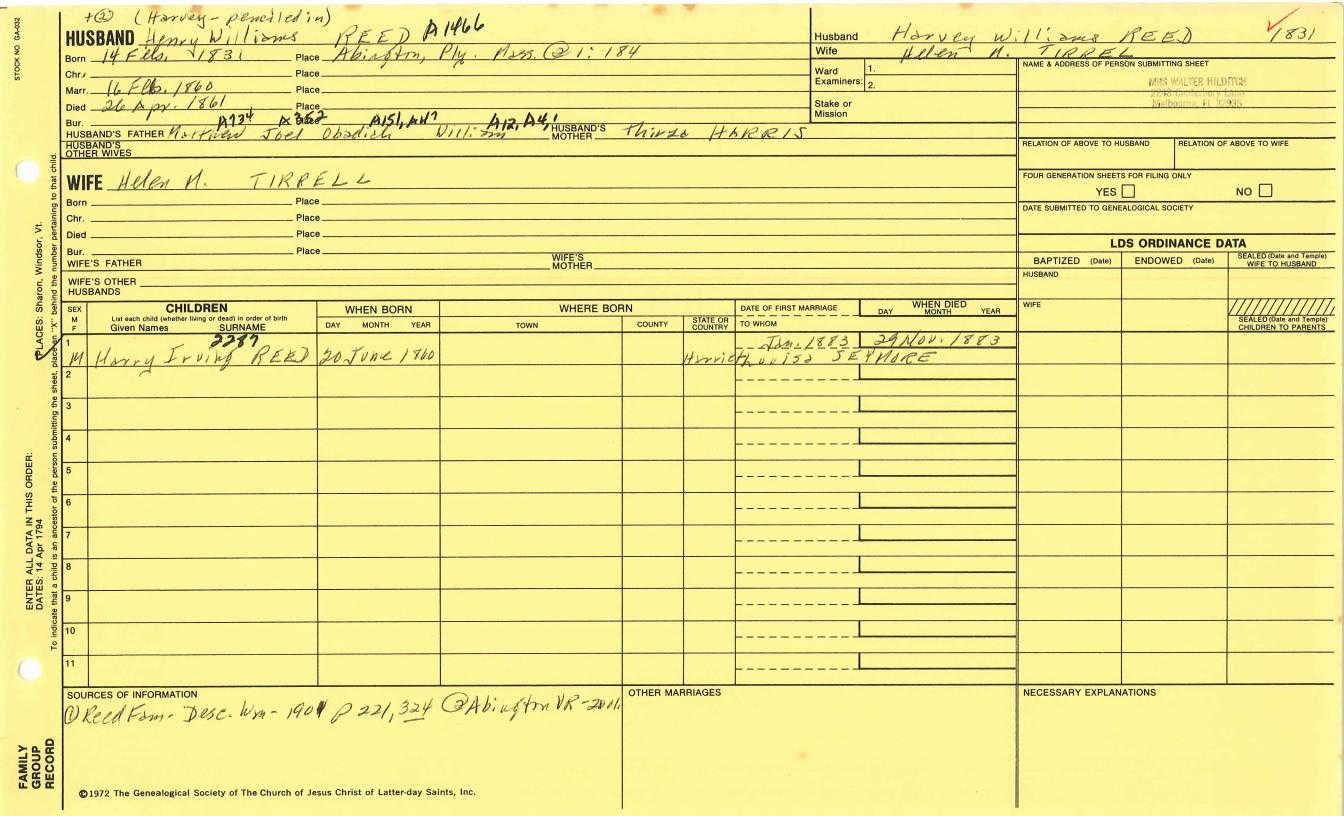 +② (Harvey - penciled in)
HUSBAND Henry Williams REED A1466
Born 14 Feb. 1831 Place Abington, Ply. Mass. ② 1: 184
Chr. Place
Marr. 16 Feb. 1860 Place
Died 26 Apr. 1861 Place
Bur. A734 A352 A151, A47 A12, A4, 1
HUSBAND'S FATHER Matthew Joel Obadiah William HUSBAND'S MOTHER Thirza HARRIS
HUSBAND'S OTHER WIVES
Husband Harvey Williams REED 1831
Wife Helen M. TIRREL
Ward Examiners: 1.
2.
Stake or Mission
NAME & ADDRESS OF PERSON SUBMITTING SHEET
MRS WALTER HILDITCH
Melbourne, FL 32935
RELATION OF ABOVE TO HUSBAND RELATION OF ABOVE TO WIFE
FOUR GENERATION SHEETS FOR FILING ONLY
YES NO
DATE SUBMITTED TO GENEALOGICAL SOCIETY
WIFE Helen M. TIRRELL
Born Place
Chr. Place
Died Place
Bur. Place
WIFE'S FATHER WIFE'S MOTHER
WIFE'S OTHER HUSBANDS
LDS ORDINANCE DATA
BAPTIZED (Date) ENDOWED (Date) SEALED (Date and Temple) WIFE TO HUSBAND
HUSBAND
WIFE
SEALED (Date and Temple) CHILDREN TO PARENTS
SEX M F
CHILDREN
List each child (whether living or dead) in order of birth
Given Names SURNAME
WHEN BORN
DAY MONTH YEAR
WHERE BORN
TOWN COUNTY STATE OR COUNTRY
DATE OF FIRST MARRIAGE
TO WHOM
WHEN DIED
DAY MONTH YEAR
1 2287 Jan. 1883 29 Nov. 1883
M Harry Irving REED 20 June 1860 Harriet Louisa SEYMORE
2
3
4
5
6
7
8
9
10
11
SOURCES OF INFORMATION
① Reed Fam - Desc. Wm - 1901 p 221, 324 ② Abington VR -
OTHER MARRIAGES
NECESSARY EXPLANATIONS
©1972 The Genealogical Society of The Church of Jesus Christ of Latter-day Saints, Inc.
STOCK NO. GA-032
ENTER ALL DATA IN THIS ORDER:
DATES: 14 Apr 1794 PLACES: Sharon, Windsor, Vt.
To indicate that a child is an ancestor of the person submitting the sheet, place an "X" behind the number pertaining to that child.
FAMILY GROUP RECORD